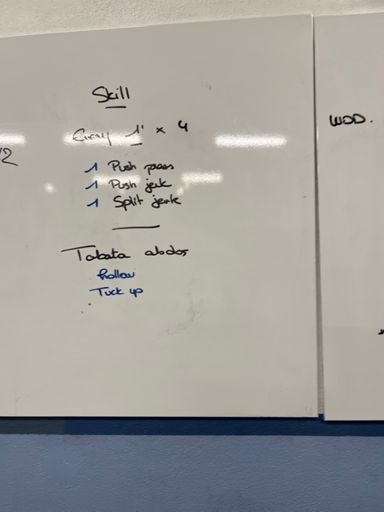 Skill
Every 1' x 4
1 Push press
1 Push jerk
1 Split jerk
Tabata abdos
hollow
Tuck up
WOD.